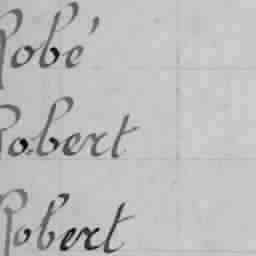 Robé
Robert
Robert